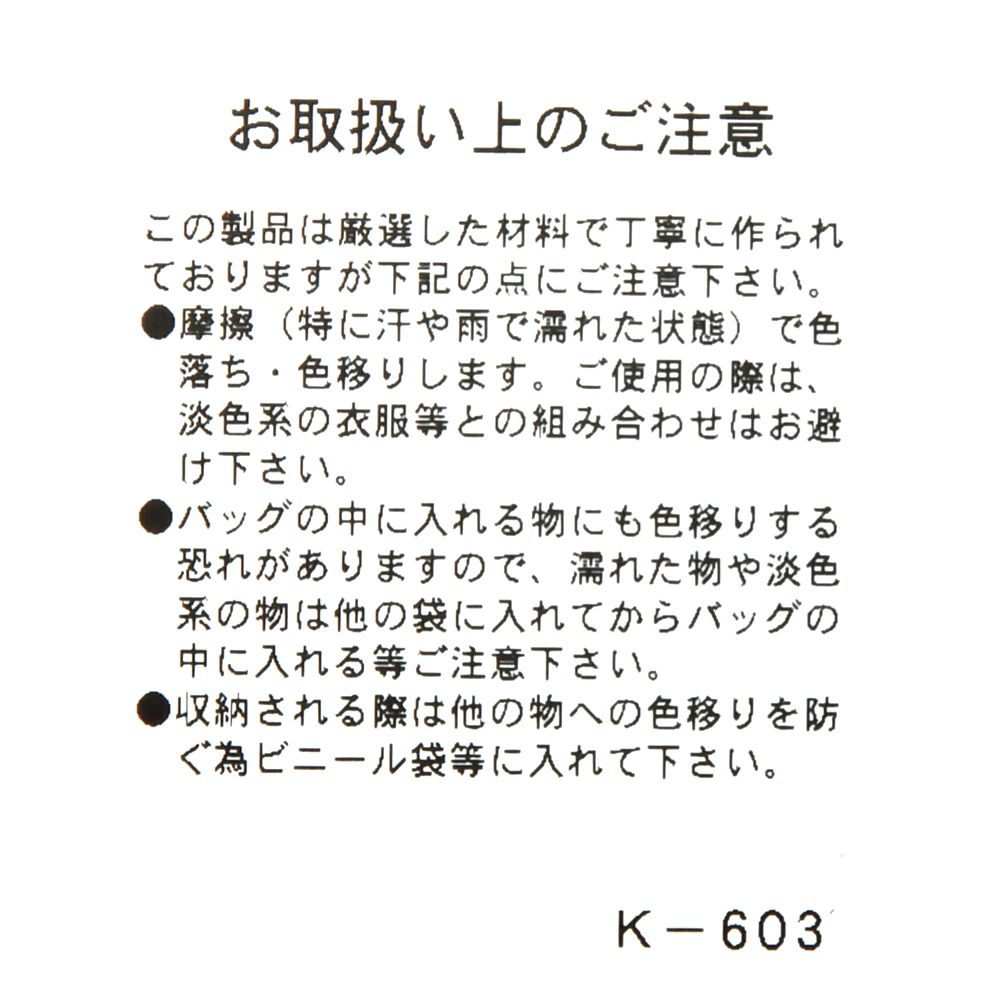 お取扱い上のご注意
この製品は厳選した材料で丁寧に作られ
ておりますが下記の点にご注意下さい。
●摩擦（特に汗や雨で濡れた状態）で色
落ち・色移りします。ご使用の際は、
淡色系の衣服等との組み合わせはお避
け下さい。
●バッグの中に入れる物にも色移りする
恐れがありますので、濡れた物や淡色
系の物は他の袋に入れてからバッグの
中に入れる等ご注意下さい。
●収納される際は他の物への色移りを防
ぐ為ビニール袋等に入れて下さい。
K－603